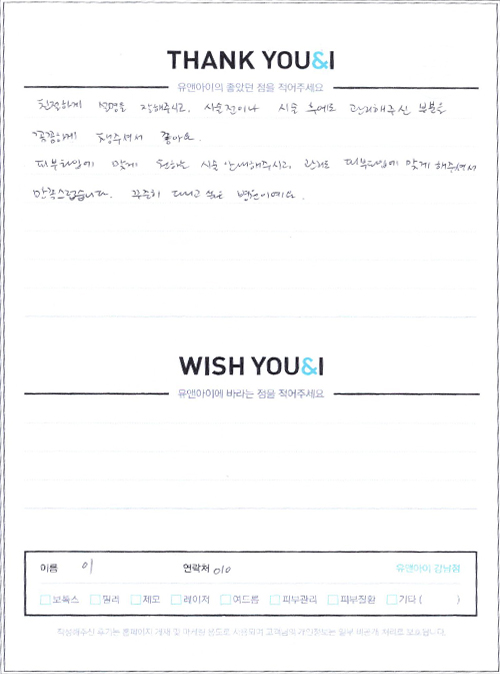 THANK YOU&I
유앤아이의 좋았던 점을 적어주세요
친절하게 설명을 잘해주시고, 시술전이나 시술 후에도 관리해주신 부분을
꼼꼼하게 챙겨주셔서 좋아요.
피부타입에 맞게 원하는 시술 안내해주시고, 관리도 피부타입에 맞게 해주셔서
만족스럽습니다. 꾸준히 다니고 싶은 병원이에요.
WISH YOU&I
유앤아이에 바라는 점을 적어주세요
이름 이 연락처 010 유앤아이 강남점
보톡스 필러 제모 레이저 여드름 피부관리 피부질환 기타 ( )
작성해주신 후기는 홈페이지 게재 및 마케팅 용도로 사용되며 고객님의 개인정보는 일부 비공개 처리로 보호됩니다.